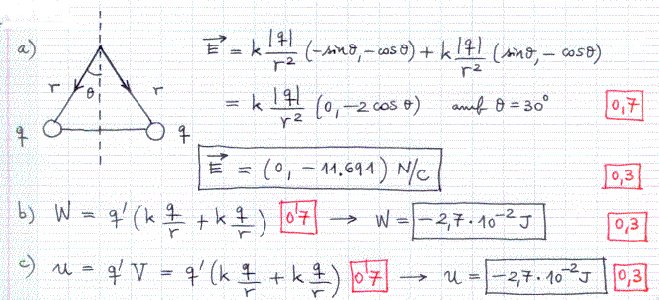 a) E⃗ = k |q|/r² (-sinθ, -cosθ) + k |q|/r² (sinθ, -cosθ)
r θ r
q q
= k |q|/r² (0, -2 cosθ) amb θ = 30° 0,7
E⃗ = (0, -11.691) N/C 0,3
b) W = q'(k q/r + k q/r) 0'7 → W = -2,7·10⁻² J 0,3
c) u = q'V = q'(k q/r + k q/r) 0'7 → u = -2,7·10⁻² J 0,3